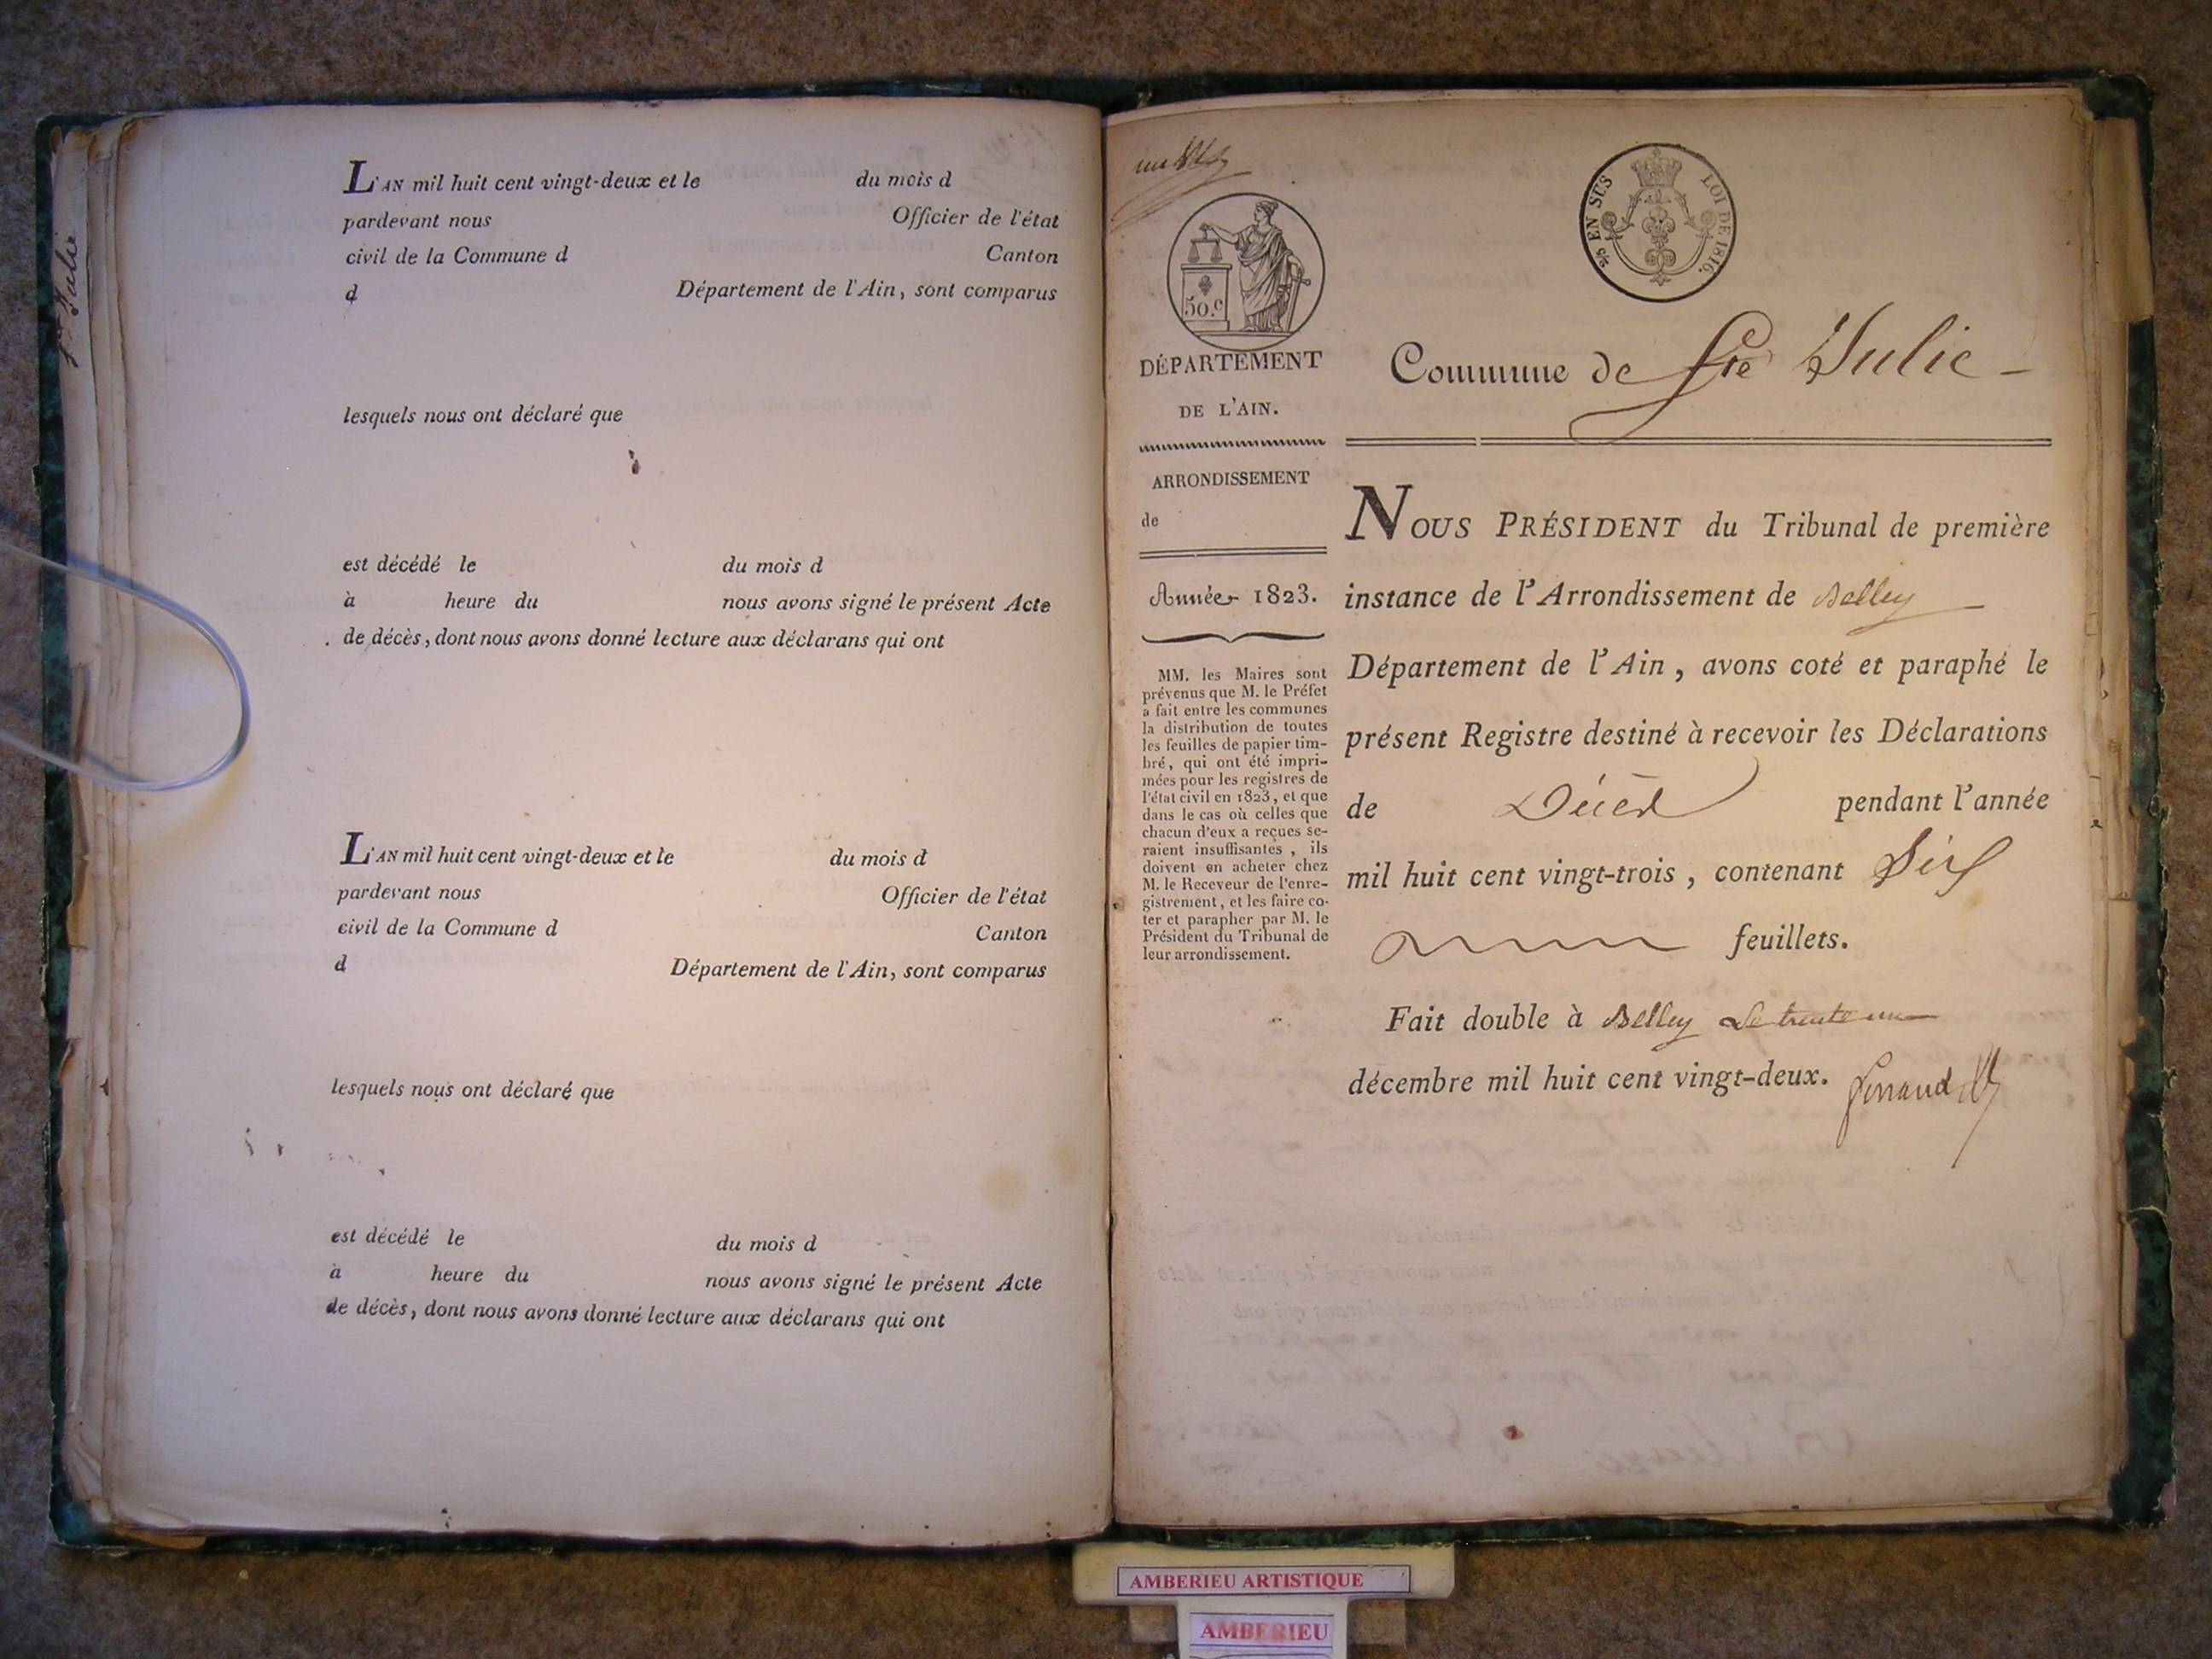 Ste Julie
L'AN mil huit cent vingt-deux et le du mois d
pardevant nous Officier de l'état
civil de la Commune d Canton
d Département de l'Ain, sont comparus
lesquels nous ont déclaré que
est décédé le du mois d
à heure du nous avons signé le présent Acte
de décès, dont nous avons donné lecture aux déclarans qui ont
L'AN mil huit cent vingt-deux et le du mois d
pardevant nous Officier de l'état
civil de la Commune d Canton
d Département de l'Ain, sont comparus
lesquels nous ont déclaré que
est décédé le du mois d
à heure du nous avons signé le présent Acte
de décès, dont nous avons donné lecture aux déclarans qui ont
50.c
EN SUS LOI DE 1816.
DÉPARTEMENT
DE L'AIN.
ARRONDISSEMENT
de
Année 1823.
MM. les Maires sont
prévenus que M. le Préfet
a fait entre les communes
la distribution de toutes
les feuilles de papier tim-
bré, qui ont été impri-
mées pour les registres de
l'état civil en 1823, et que
dans le cas où celles que
chacun d'eux a reçues se-
raient insuffisantes, ils
doivent en acheter chez
M. le Receveur de l'enre-
gistrement, et les faire co-
ter et parapher par M. le
Président du Tribunal de
leur arrondissement.
Commune de Ste Julie
NOUS PRÉSIDENT du Tribunal de première
instance de l'Arrondissement de Belley
Département de l'Ain, avons coté et paraphé le
présent Registre destiné à recevoir les Déclarations
de Décès pendant l'année
mil huit cent vingt-trois, contenant Six
feuillets.
Fait double à Belley le trente un
décembre mil huit cent vingt-deux.
AMBERIEU ARTISTIQUE
AMBERIEU